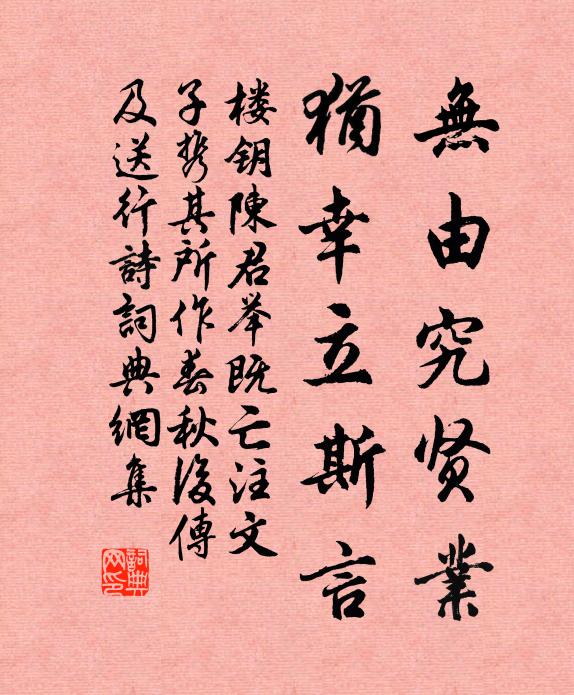 無由究贤業
猶幸立斯言
楼钥陳君举既亡注文
子携其所作春秋後傳
及送行詩詞典網集
詞典网印